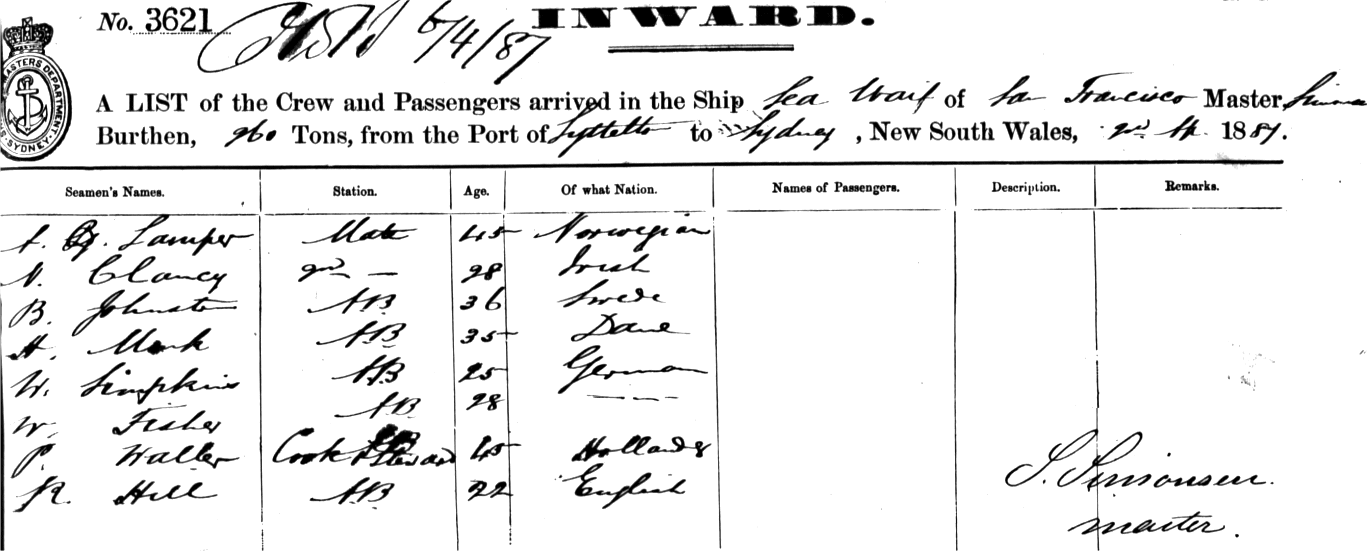 No. 3621
6/4/87
INWARD.
A LIST of the Crew and Passengers arrived in the Ship Sea Waif of San Francisco Master,
Burthen, 260 Tons, from the Port of Lyttelton to Sydney, New South Wales, 2nd Ap. 1887.
MASTERS DEPARTMENT
SYDNEY
Seamen's Names. Station. Age. Of what Nation. Names of Passengers. Description. Remarks.
Lamper Mate 45 Norwegian
N. Clancy 2nd — 28 Irish
B. Johnston AB 36 Swede
H. Monk AB 35 Dane
W. Simpkins AB 25 German
W. Fisher AB 28 — — —
P. Waller Cook & Steward 45 Hollander
R. Hill AB 22 English
S. Simonsen.
master.